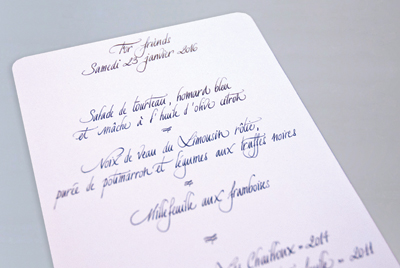 For friends
Samedi 23 janvier 2016
Salade de tourteau, homard bleu
et mâche à l'huile d'olive citron
Noix de veau du Limousin rôtie,
purée de potimarron et légumes aux truffes noires
Millefeuille aux framboises
Chailloux - 2014
2011